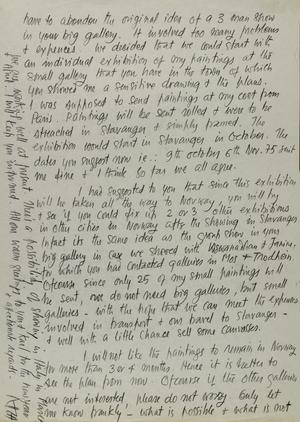 have to abandon the original idea of a 3 man show
in your big gallery. It involved too many problems
& expences. We decided that we could start with
an individual exhibition of my paintings at the
small gallery that you have in the town, of which
you showed me a sensitive drawing & the plans.
I was supposed to send paintings at my cost from
Paris. Paintings will be sent rolled & were to be
streached in Stavanger & simply framed. The
exhibition would start in Stavanger in October. The
dates you suggest now ie.: 9th october 6th Nov. 75 suit
me fine & I think so far we all agree.
I had suggested to you that since this exhibition
will be taken all the way to Norway, you will try
to see if you could fix up 2 or 3 other exhibitions
in other cities in Norway after the showing in Stavanger
Infact its the same idea as the group show in your
big gallery in case we showed with Viswanadhan &
for which you had contacted galleries in Oslo & Trodhein.
Ofcourse since only 25 of my small paintings will
be sent, now do not need big galleries, but small
galleries - with the hope that we can meet the expenses
involved in transport & our travel to Stavanger -
& well with a little chance sell some canvases.
I will not like the paintings to remain in Norway
for more than 3 or 4 months. Hence it is better to
see the plan from now. Ofcourse if the other galleries
are not interested, please do not worry. Only let
me know frankly - what is possible & what is not